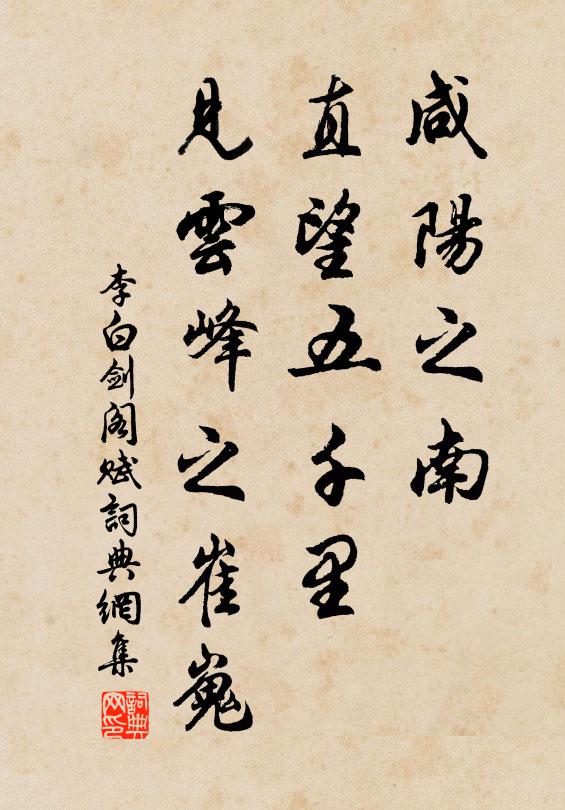 咸陽之南
直望五千里
見雲峰之崔嵬
李白劍阁赋詞典網集
詞典
网印